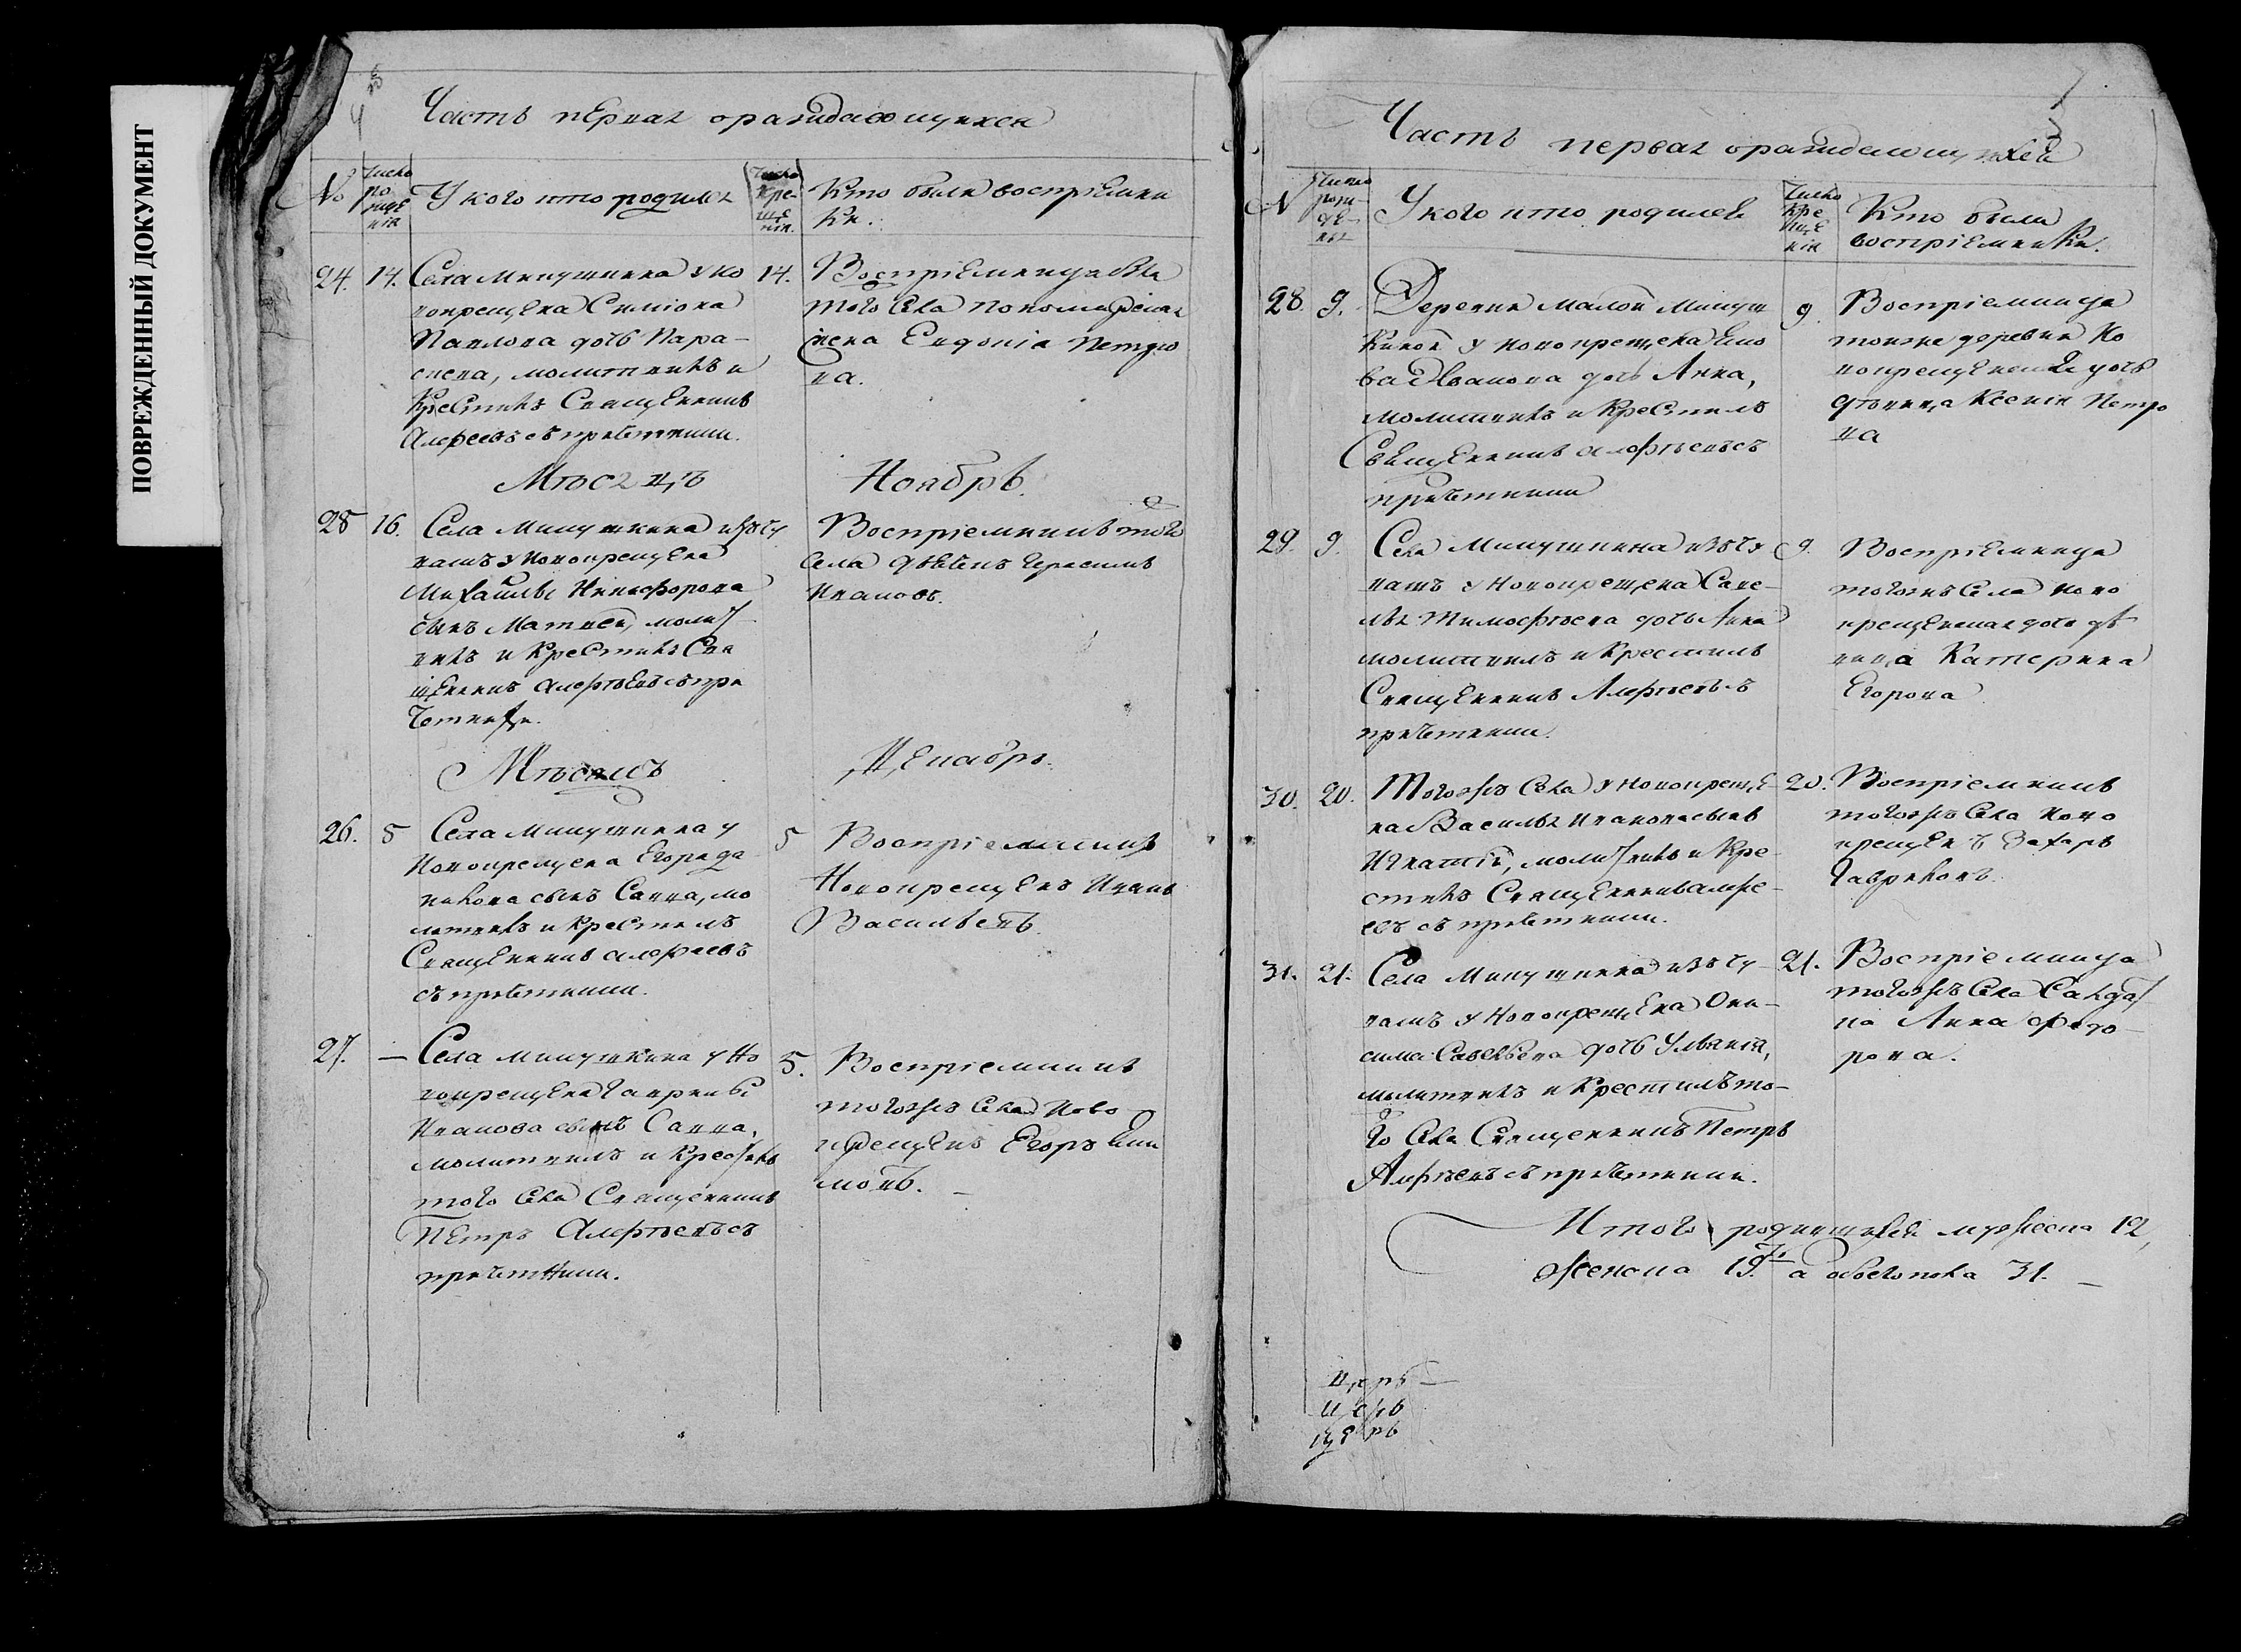 ПОВРЕЖДЕННЫЙ ДОКУМЕНТ
Часть первая ораждающихся
№
Число рождения
У кого кто родился
Число крещения
Кто были восприемники
24. 14. Села Минушкина у но
вокрещена Симіона
Павлова дочь Пара-
скева, молитвилъ и
Крестилъ Священникъ
Алефеевъ съ причетники.
14. Воспріемница была
того Села пономарская
жена Евдокія Петро
ва.
Мѣсяцъ Ноябрь.
25 16. Села Минушкина изъ чу
вашъ у Новокрещена
Михайлы Никифорова
сынъ Матвей, молит
вилъ и Крестилъ Свя
щенникъ Алефѣевъ съ при
четники.
Воспріемникъ того
села Герасимъ
Ивановъ.
Мѣсяцъ Декабрь.
26. 5 Села Минушкина у
Новокрещена Егора Да
нилова сынъ Савва, мо
литвилъ и Крестилъ
Священникъ Алефеевъ
съ причетники.
5 Воспріемникъ
Новокрещенъ Иванъ
Васильевъ.
27. — Села Минушкина у Но
вокрещена Гаврилы
Иванова сынъ Савва,
молитвилъ и Крестилъ
того Села Священникъ
Петръ Алефѣевъ съ
причетники.
5. Воспріемникъ
тогожъ Села Ново
крещенъ Егоръ
Часть первая ораждающихся
№
Число рожденья
У кого кто родился
Число крещенія
Кто были
воспріемники.
28. 9. Деревни Малой Минуш
киной у новокрещена
Иванова дочь Анна,
молитвилъ и Крестилъ
Священникъ Алефѣевъ съ
причетники
9 Воспріемница
тоиже деревни Но
вокрещенская дочь
дѣвица Ксенія Петро
ва
29. 9. Села Минушкина изъ чу
вашъ у Новокрещена Саве-
лья Тимофѣева дочь Анна
молитвилъ и Крестилъ
Священникъ Алефѣевъ съ
причетники.
9. Воспріемница
тогожъ Села ново
крещенская дочь дѣ
вица Катерина
Егорова
30. 20. Тогожъ Села у Новокреще
на Василья Иванова сынъ
Игнатій, молитвилъ и Кре-
стилъ Священникъ Алефе-
евъ съ причетники.
20. Воспріемникъ
тогожъ Села ново
крещенъ Захаръ
Гавриловъ.
31. 21. Села Минушкина изъ чу
вашъ у Новокрещена Они-
сима Савельева дочь Ульянія,
молитвилъ и Крестилъ то-
го Села Священникъ Петръ
Алефѣевъ съ причетники.
21. Воспріемница
тогожъ Села Салдат
ка Анна Федо-
рова.
Итого родившихся мужеска 12,
женска 19. а обоего пола 31.